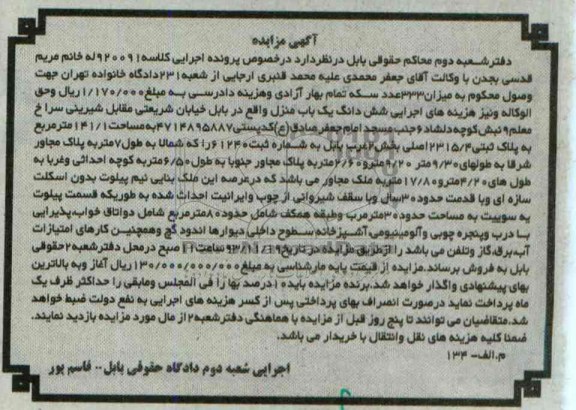 آگهی مزایده
دفترشعبه دوم محاکم حقوقی بابل درنظردارد درخصوص پرونده اجرایی کلاسه۹۲۰۰۹۱له خانم مریم
قدسی بجدن با وکالت آقای جعفر محمدی علیه محمد قنبری ارجایی از شعبه۲۳۱دادگاه خانواده تهران جهت
وصول محکوم به میزان۳۳۳عدد سکه تمام بهار آزادی وهزینه دادرسی به مبلغ۱/۱۷۰/۰۰۰ ریال وحق
الوکاله ونیز هزینه های اجرایی شش دانگ یک باب منزل واقع در بابل خیابان شریعتی مقابل شیرینی سرا خ
معلم۹نبش کوچه دلشاد۶جنب مسجد امام جعفرصادق(ع)کدپستی۴۷۱۴۸۹۵۸۸۷به مساحت۱۴۱/۱مترمربع
به پلاک ثبتی۲۳۱۵/۴اصلی بخش۲غرب بابل به شماره ثبت۶۱۲۴۰که شمالا به طول۷متربه پلاک مجاور
شرقا به طولهای۹/۳۰متر ۹/۲۰مترو۲/۶۰متربه پلاک مجاور جنوبا به طول۶/۵۰متربه کوچه احداثی وغربا به
طول های۴/۲۰مترو۱۷/۸۰متربه ملک مجاور می باشد که درعرصه این ملک بنایی نیم پیلوت بدون اسکلت
سازه ای وبا قدمت حدود۳۰سال وبا سقف شیروانی از چوب وایرانیت احداث شده به طوریکه قسمت پیلوت
یه سوییت به مساحت حدود۳۰مترمرب وطبقه همکف شامل حدود۸۰مترمربع شامل دواتاق خواب،پذیرایی
بـا درب وپنجره چوبی وآلومینیومی آشپزخانه سطوح داخلی دیوارها اندود گچ وهمچنین کارهای امتیازات
آب،برق،گاز وتلفن می باشد را ازطریق مزایده در تاریخ ساعت۱۱ صبح درمحل دفترشعبه۲حقوقی
بابل به فروش برساند.مزایده از قیمت پایه مارشناسی به مبلغ۱/۱۳۰/۰۰۰/۰۰۰ریال آغاز وبه بالاترین
بهای پیشنهادی واگذار خواهد شد.برنده مزایده باید۱۰درصد بها را فی المجلس ومابقی را حداکثر ظرف یک
ماه پرداخت نماید درصورت انصراف بهای پرداختی پس از کسر هزینه های اجرایی به نفع دولت ضبط خواهد
شد.متقاضیان می توانند تا پنج روز قبل از مزایده با هماهنگی دفترشعبه۲از مال مورد مزایده بازدید نمایند.
ضمنا کلیه هزینه های نقل وانتقال با خریدار می باشد.
م.الف- ۱۳۴
اجرایی شعبه دوم دادگاه حقوقی بابل.. قاسم پور